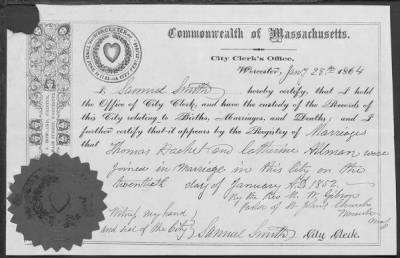 Commonwealth of Massachusetts.
City Clerk's Office,
Worcester, Jany 28th 1864
I, Samuel Smith hereby certify, that I hold
the Office of City Clerk, and have the custody of the Records of
this City relating to Births, Marriages, and Deaths; and I
further certify that it appears by the Registry of Marriages
that Thomas Hacket and Catharine were
joined in Marriage in this City on the
twentieth day of January A.D. 1852.
By the Rev. M. W. Gibson
Pastor of St. Johns Church
Witness my hand
and seal of the City
Samuel Smith City Clerk.